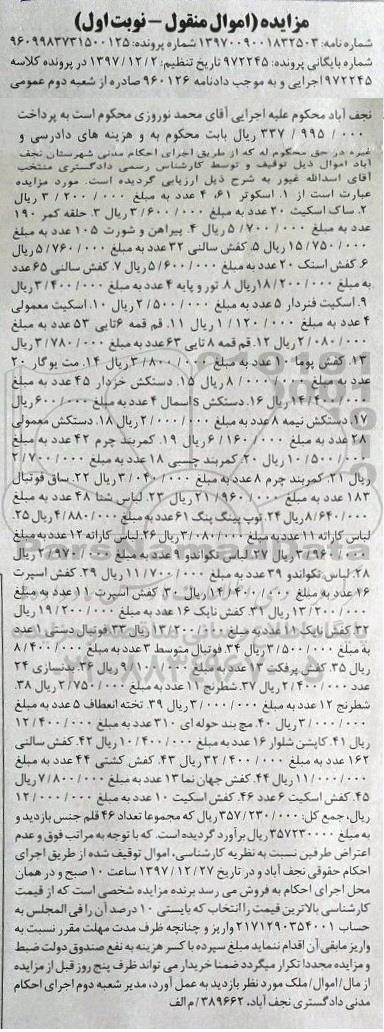 مزایده (اموال منقول - نوبت اول)
شماره نامه: ۱۳۹۷۰۰۹۰۰۱۸۳۲۵۰۳ شماره پرونده: ۹۶۰۹۹۸۳۷۳۱۵۰۰۱۲۵
شماره بایگانی پرونده: ۹۷۲۲۴۵ تاریخ تنظیم: ۱۳۹۷/۱۲/۲ در پرونده کلاسه
۹۷۲۲۴۵ اجرایی و به موجب دادنامه ۹۶۰۱۲۶ صادره از شعبه دوم عمومی
نجف آباد محکوم علیه اجرایی آقای محمد نوروزی محکوم است به پرداخت
۳۳۷/۹۹۵/۰۰۰ ریال بابت محکوم به و هزینه های دادرسی و
غیره در حق محکوم له که از طریق اجرای احکام مدنی شهرستان نجف
آباد اموال ذیل توقیف و توسط کارشناس رسمی دادگستری منتخب
آقای اسدالله غیور به شرح ذیل ارزیابی گردیده است. مورد مزایده
عبارت است از ۱. اسکوتر ۶۱، ۴ عدد به مبلغ ۳/۲۰۰/۰۰۰ ریال
۲. ساک اسکیت ۲۰ عدد به مبلغ ۳/۶۰۰/۰۰۰ ریال ۳. حلقه کمر ۱۹۰
عدد به مبلغ ۵/۷۰۰/۰۰۰ ریال ۴. پیراهن و شورت ۱۰۵ عدد به مبلغ
۱۵/۷۵۰/۰۰۰ ریال ۵. کفش سالنی ۳۲ عدد به مبلغ ۵/۷۶۰/۰۰۰ ریال
۶. کفش استک ۲۰ عدد به مبلغ ۵/۶۰۰/۰۰۰ ریال ۷. کفش سالنی ۶۵ عدد
به مبلغ ۱۸/۲۰۰/۰۰۰ ریال ۸. تور و پایه ۴ عدد به مبلغ ۳/۴۰۰/۰۰۰ ریال
۹. اسکیت فنردار ۵ عدد به مبلغ ۲/۵۰۰/۰۰۰ ریال ۱۰. اسکیت معمولی
۴ عدد به مبلغ ۱/۱۲۰/۰۰۰ ریال ۱۱. قم قمه ۶ تایی ۵۳ عدد به مبلغ
۲/۰۸۰/۰۰۰ ریال ۱۲. قم قمه ۸ تایی ۶۳ عدد به مبلغ ۳/۷۸۰/۰۰۰ ریال
۱۳. کفش پوما ۱۰ عدد به مبلغ ۳/۸۰۰/۰۰۰ ریال ۱۴. مت یوگار ۲۰
عدد به مبلغ ۸/۰۰۰/۰۰۰ ریال ۱۵. دستکش خزدار ۴۵ عدد به مبلغ
۱۴/۴۰۰/۰۰۰ ریال ۱۶. دستکش s اسمال ۴ عدد به مبلغ ۶۰۰/۰۰۰ ریال
۱۷. دستکش نیمه ۸ عدد به مبلغ ۲/۰۰۰/۰۰۰ ریال ۱۸. دستکش معمولی
۲۸ عدد به مبلغ ۶/۱۶۰/۰۰۰ ریال ۱۹. کمربند چرم ۴۲ عدد به مبلغ
۱۰/۵۰۰/۰۰۰ ریال ۲۰. کمربند چسبی ۱۸ عدد به مبلغ ۲/۷۰۰/۰۰۰
ریال ۲۱. کمربند چرم ۸ عدد به مبلغ ۳/۰۴۰/۰۰۰ ریال ۲۲. ساق فوتبال
۱۸۳ عدد به مبلغ ۲۱/۹۶۰/۰۰۰ ریال ۲۳. لباس شنا ۴۸ عدد به مبلغ
۸/۶۴۰/۰۰۰ ریال ۲۴. توپ پینگ پنگ ۶۱ عدد به مبلغ ۴/۸۸۰/۰۰۰ ریال ۲۵.
لباس کاراته ۱۱ عدد به مبلغ ۳/۰۸۰/۰۰۰ ریال ۲۶. لباس کاراته ۱۲ عدد به مبلغ
۳/۹۶۰/۰۰۰ ریال ۲۷. لباس تکواندو ۹ عدد به مبلغ ۲/۹۷۰/۰۰۰ ریال
۲۸. لباس تکواندو ۳۹ عدد به مبلغ ۱۱/۷۰۰/۰۰۰ ریال ۲۹. کفش اسپرت
۱۶ عدد به مبلغ ۱۴/۴۰۰/۰۰۰ ریال ۳۰. کفش اسپرت ۱۱ عدد به مبلغ
۱۳/۲۰۰/۰۰۰ ریال ۳۱. کفش نایک ۱۶ عدد به مبلغ ۱۹/۲۰۰/۰۰۰ ریال
۳۲. کفش نایک ۱۱ عدد به مبلغ ۱۳/۲۰۰/۰۰۰ ریال ۳۳. فوتبال دستی ۱ عدد
به مبلغ ۳/۵۰۰/۰۰۰ ریال ۳۴. فوتبال متوسط ۳ عدد به مبلغ ۸/۴۰۰/۰۰۰
ریال ۳۵. کفش پرفکت ۱۳ عدد به مبلغ ۹/۱۰۰/۰۰۰ ریال ۳۶. بدنسازی ۲۴
عدد ۲/۴۰۰/۰۰۰ ریال ۳۷. شطرنج ۱۱ عدد به مبلغ ۲/۷۵۰/۰۰۰ ریال ۳۸.
شطرنج ۱۲ عدد به مبلغ ۳/۰۰۰/۰۰۰ ریال ۳۹. تخته انعطاف ۵ عدد به مبلغ
۳/۰۰۰/۰۰۰ ریال ۴۰. مچ بند حوله ای ۳۱۰ عدد به مبلغ ۱۲/۴۰۰/۰۰۰
ریال ۴۱. کاپشن شلوار ۱۶ عدد به مبلغ ۱۰/۴۰۰/۰۰۰ ریال ۴۲. کفش سالنی
۱۶۲ عدد به مبلغ ۳۲/۴۰۰/۰۰۰ ریال ۴۳. کفش کشتی ۴۴ عدد به مبلغ
۱۱/۰۰۰/۰۰۰ ریال ۴۴. کفش جهان نما ۱۳ عدد به مبلغ ۷/۸۰۰/۰۰۰ ریال
۴۵. کفش اسکیت ۶ عدد ۴۶. کفش اسکیت ۱۰ عدد به مبلغ ۱۲/۰۰۰/۰۰۰
ریال، جمع کل: ۳۵۷/۲۳۰/۰۰۰ ریال که مجموعا تعداد ۴۶ قلم جنس بازدید و
به مبلغ ۳۵۷۲۳۰۰۰۰ ریال برآورد گردیده است. که با توجه به مراتب فوق و عدم
اعتراض طرفین نسبت به نظریه کارشناسی، اموال توقیف شده از طریق اجرای
احکام حقوقی نجف آباد و در تاریخ ۱۳۹۷/۱۲/۲۷ ساعت ۱۰ صبح و در همان
محل اجرای احکام به فروش می رسد برنده مزایده شخصی است که از قیمت
کارشناسی بالاترین قیمت را انتخاب که بایستی ۱۰ درصد آن را فی المجلس به
حساب ۲۱۷۱۲۹۰۳۵۴۰۰۱ واریز و چنانچه ظرف مدت مهلت مقرر نسبت به
واریز مابقی آن اقدام ننماید مبلغ سپرده با کسر هزینه به نفع صندوق دولت ضبط
و مزایده مجددا تکرار میگردد ضمنا خریدار می تواند ظرف پنج روز قبل از مزایده
از مال/اموال/ملک مورد نظر بازدید به عمل آورد، مدیر شعبه دوم اجرای احکام
مدنی دادگستری نجف آباد، ۳۸۹۶۶۲/م الف